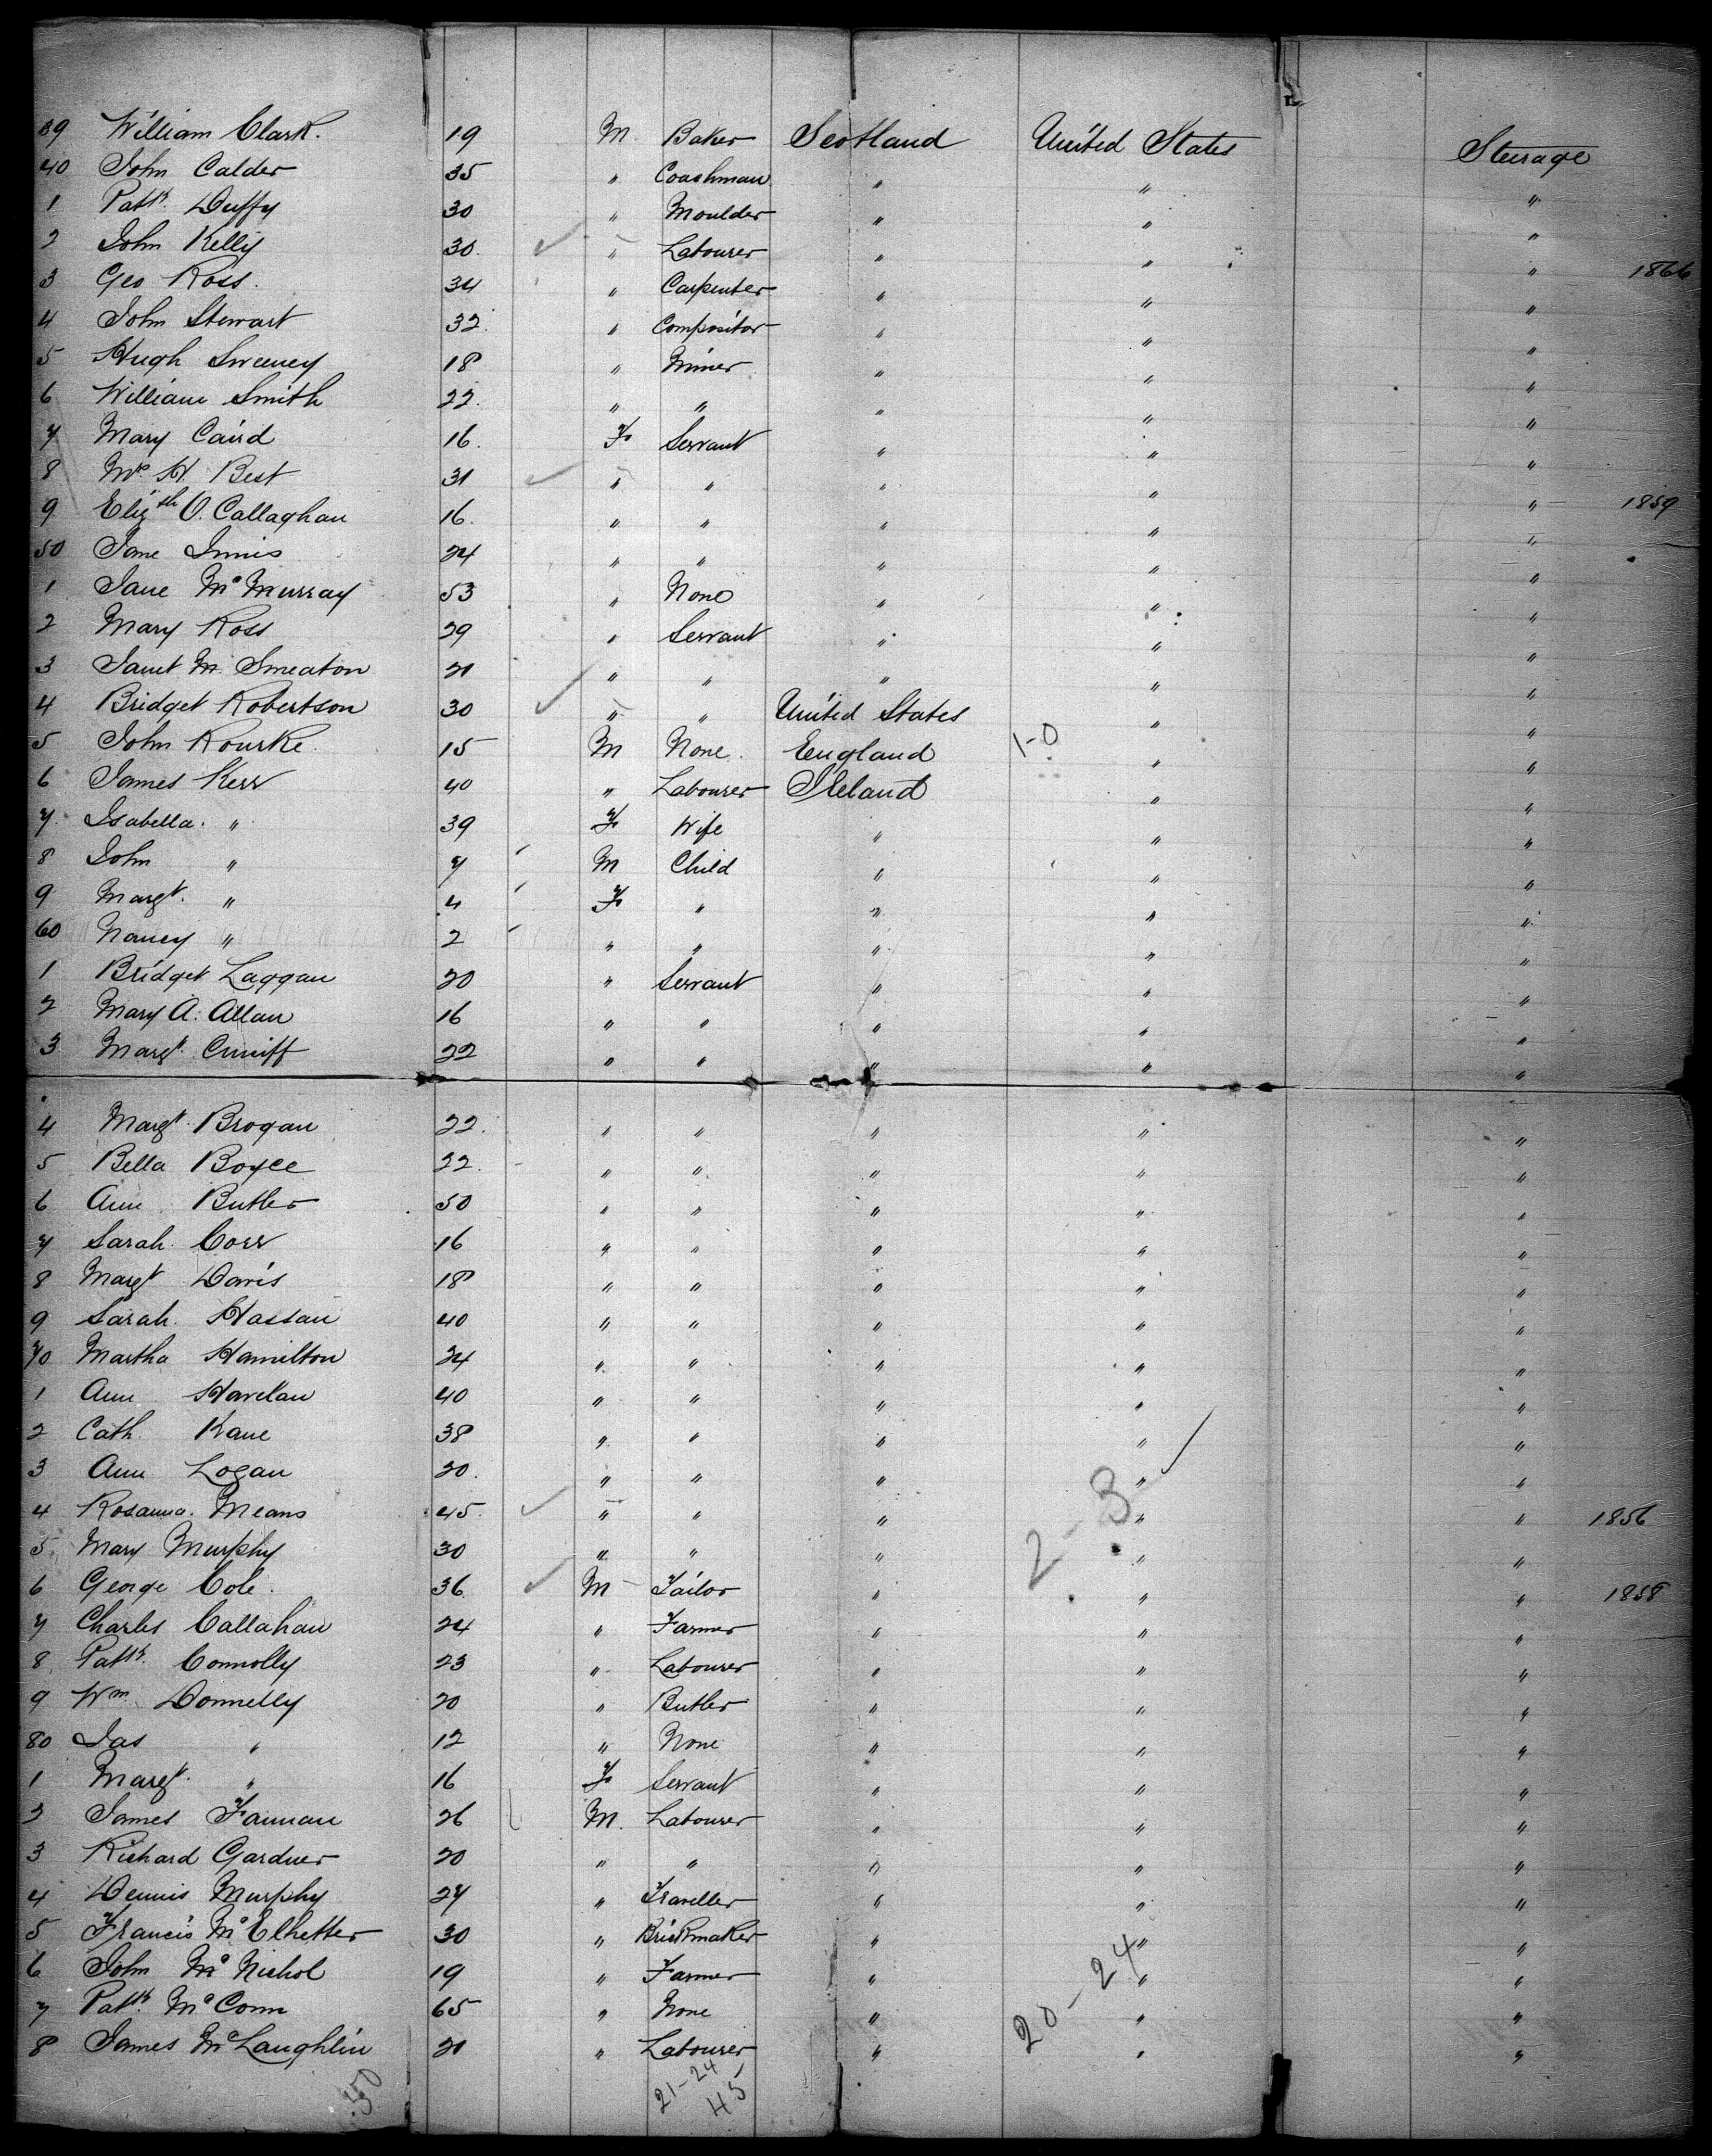 39 William Clark. 19 M. Baker Scotland United States Steerage
40 John Calder 35 " Coachman " " "
1 Pattk. Duffy 30 " Moulder " " "
2 John Kelly 30. ✓ " Labourer " " " 1866
3 Geo Ross. 34 " Carpenter " " "
4 John Stewart 32. " Compositor " " "
5 Hugh Sweeney 18 " Miner " " "
6 William Smith 22. " " " " "
7 Mary Caird 16. F Servant " " "
8 Mrs. H. Best 31 ✓ " " " " " 1859
9 Elizth O. Callaghan 16. " " " " "
50 Jane Innis 24 " " " " "
1 Jane Mc Murray 53 " None " " "
2 Mary Ross 29 " Servant " " "
3 Janet M. Smeaton 21 " " " " "
4 Bridget Robertson 30 ✓ " " United States " "
5 John Rourke. 15 M None. England 1-0 " "
6 James Kerr 40 " Labourer Ireland " "
7 Isabella. " 39 F Wife " " "
8 John " 7 M Child " " "
9 Margt. " 4 F " " " "
60 Nancy " 2 " " " " "
1 Bridget Laggan 20 " Servant " " "
2 Mary A. Allan 16 " " " " "
3 Margt. Cuniff 22 " " " " "
4 Margt. Brogan 22. " " " " "
5 Bella Boyce 22. " " " " "
6 Ann Butler 50 " " " " "
7 Sarah. Corr 16 " " " " "
8 Margt Davis 18 " " " " "
9 Sarah. Hassan 40 " " " " "
70 Martha Hamilton 24 " " " " "
1 Ann Havelan 40 " " " " "
2 Cath. Kane 38 " " " " "
3 Ann Logan 20. " " " " "
4 Rosanna. Means 45. ✓ " " " " " 1856
5 Mary Murphy 30 " " " 2-3 ✓ " "
6 George Cole. 36. ✓ M Tailor " " " 1858
7 Charles Callahan 24 " Farmer " " "
8 Pattk. Connolly 23 " Labourer " " "
9 Wm Donnelly 20 " Butler " " "
80 Jas " 12 " None " " "
1 Margt. " 16 F Servant " " "
2 James Fannan 26 M. Labourer " " "
3 Richard Gardner 20 " " " " "
4 Dennis Murphy 27 " Traveller " " "
5 Francis Mc Elhetter 30 " Brickmaker " " "
6 John Mc Nichol 19 " Farmer " " "
7 Pattk. Mc Conn 65 " None " 20-24 " "
8 James McLaughlin 21 " Labourer " " "
50 21-24
45